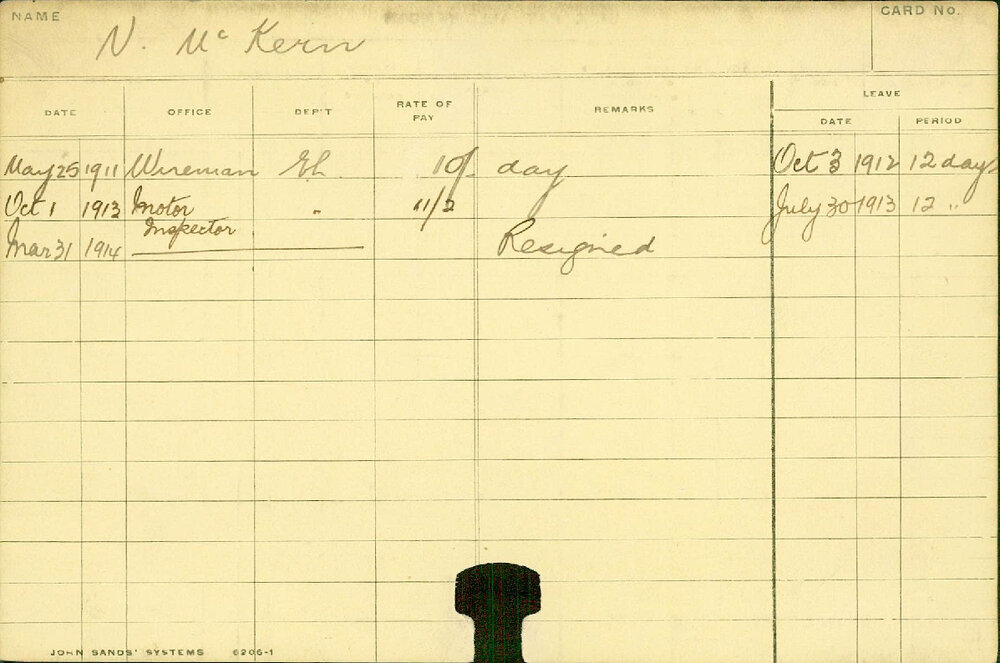 NAME N. McKern CARD NO.
LEAVE
DATE OFFICE DEP'T RATE OF PAY REMARKS DATE PERIOD
May 25 1911 Wireman 10/- day Oct 3 1912 12 days
Oct 1 1913 Motor " 11/2 July 30 1913 12 "
Inspector
Mar 31 1914 Resigned
JOHN SANDS' SYSTEMS 6206-1